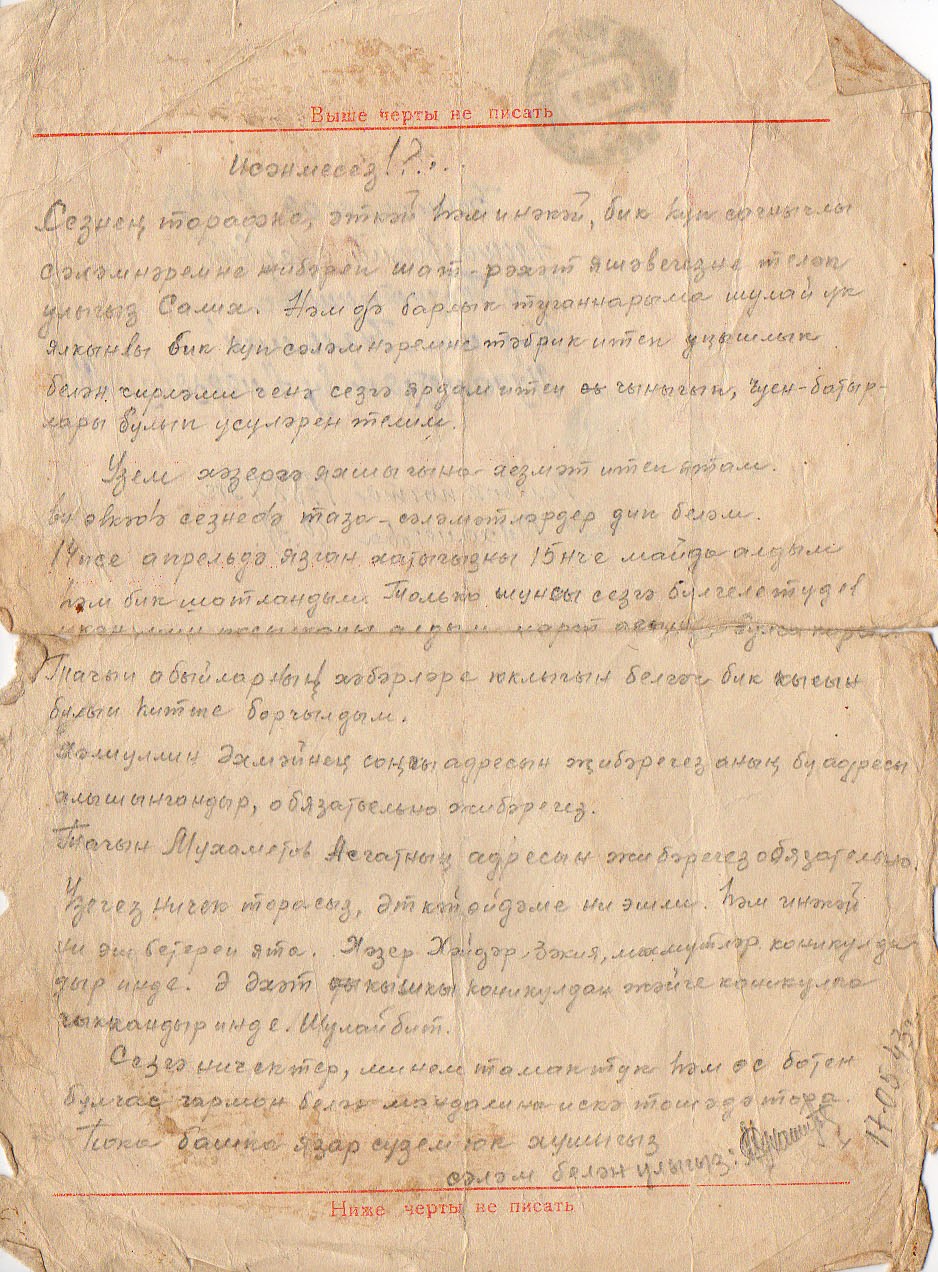 Выше черты не писать
Исәнмесез!?...
Сезнең тарафка, әткәй һәм инәкәй, бик күп сагнычлы
сәләмнәремне җибәреп шат-рәхәт яшәвегезне теләп
улыгыз Салих. Һәм дә барлык туганнарыма шулай ук
ялкынлы бик күп сәләмнәремне тәбрик итеп уңышлык
белән чирләми генә сезгә ярдәм итеп чыныгып, Чуен-батыр-
лары булып үсүләрен телим.
Үзем хәзергә яхшы гына хезмәт итеп ятам.
Бу сезнедә таза-сәләмәтләрдер дип беләм.
14нсе апрельдә язган хатыгызны 15нче майда алдым
һәм бик шатландым. Только шунсы сезгә билгеле түдев
алдым
Тагын абыйларның хәбәрләре юклыгын белгәч бик кысын
булып китте борчылдым.
Хәлиуллин Әхмәйнең соңгы адресын җибәрегез аның бу адресы
алышынгандыр, обязательно җибәрегез.
Тагын Мухаметов Асгатның адресын җибәрегез обязательно.
Үзегез ничек торасыз, Әткәй өйдәме ни эшли. Һәм инәкәй
ни эш бетереп ята. Хәзер Хәйдәр, Зәкия, Махмутләр коникулда
дыр инде. Ә Әхәт кышкы коникулдан җәйге коникулга
чыккандыр инде. Шулай бит.
Сезгә ничектер, минем тамак тук һәм өс бөтен
булгас гармон белән мандалина искә тошәдә тора.
Пока башка язар сүзем юк хушыгыз
сәләм белән улыгыз:
17-05-43г
Ниже черты не писать